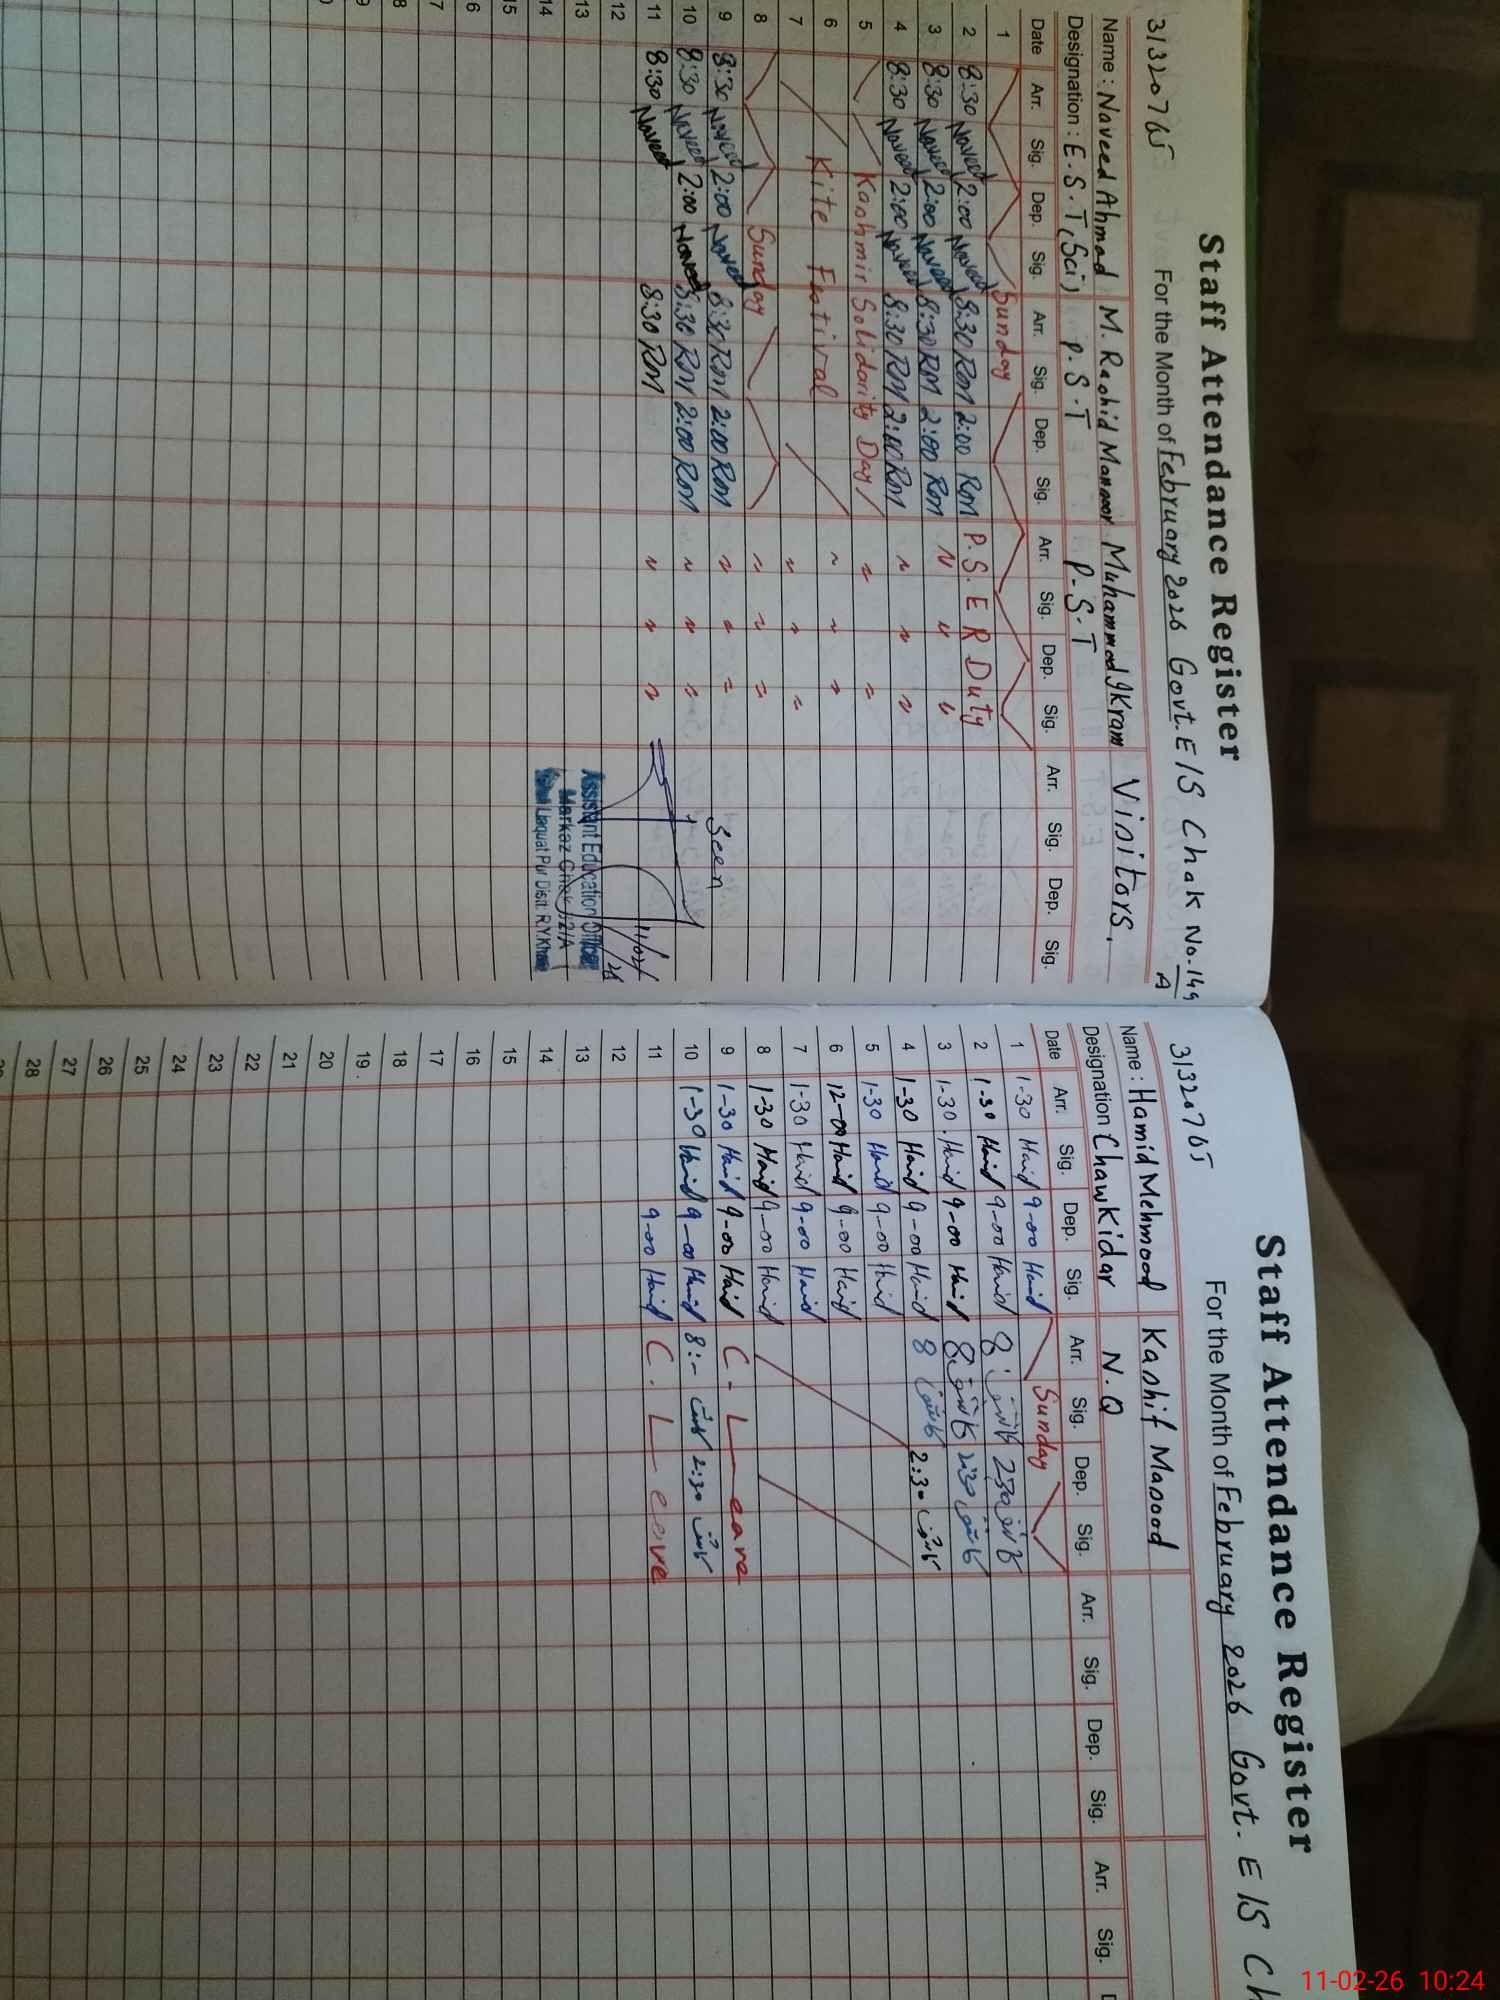 Staff Attendance Register
For the Month of February 2026 Govt. E/S Chak No. 149/A
31320765
Name : Naveed Ahmad M. Rashid Manzoor Muhammad Ikram Visitors.
Designation : E.S.T(Sci) P.S.T P-S-T
Date Arr. Sig. Dep. Sig. Arr. Sig. Dep. Sig. Arr. Sig. Dep. Sig. Arr. Sig. Dep. Sig.
1 Sunday
2 8:30 Naveed 2:00 Naveed 8:30 RM 2:00 RM P.S.E R Duty
3 8:30 Naveed 2:00 Naveed 8:30 RM 2:00 RM " " "
4 8:30 Naveed 2:00 Naveed 8:30 RM 2:00 RM " " "
5 Kashmir Solidarity Day " " "
6 Kite Festival " " "
7 " " "
8 Sunday " " "
9 8:30 Naveed 2:00 Naveed 8:30 RM 2:00 RM " " " Seen
10 8:30 Naveed 2:00 Naveed 8:30 RM 2:00 RM " " "
11 8:30 Naveed 8:30 RM " " " 11/02/26
12
13 Assistant Education Officer
Markaz Chak 21/A
14 Liaquat Pur Distt. R.Y.Khan
15
16
Staff Attendance Register
For the Month of February 2026 Govt. E/S Ch
31320765
Name : Hamid Mehmood Kashif Masood
Designation Chawkidar N.Q
Date Arr. Sig. Dep. Sig. Arr. Sig. Dep. Sig. Arr. Sig. Dep. Sig. Arr. Sig.
1 1-30 Hamid 9-00 Hamid Sunday
2 1-30 Hamid 9-00 Hamid 8: کاشف 2:30 کاشف
3 1-30 Hamid 9-00 Hamid 8: کاشف 2:30 کاشف
4 1-30 Hamid 9-00 Hamid 8 کاشف 2:30 کاشف
5 1-30 Hamid 9-00 Hamid
6 12-00 Hamid 9-00 Hamid
7 1-30 Hamid 9-00 Hamid
8 1-30 Hamid 9-00 Hamid
9 1-30 Hamid 9-00 Hamid C-Leave
10 1-30 Hamid 9-00 Hamid 8:- کاشف 2:30 کاشف
11 9-00 Hamid C.Leave
12
13
14
15
16
17
18
19
20
21
22
23
24
25
26
27
28
11-02-26 10:24